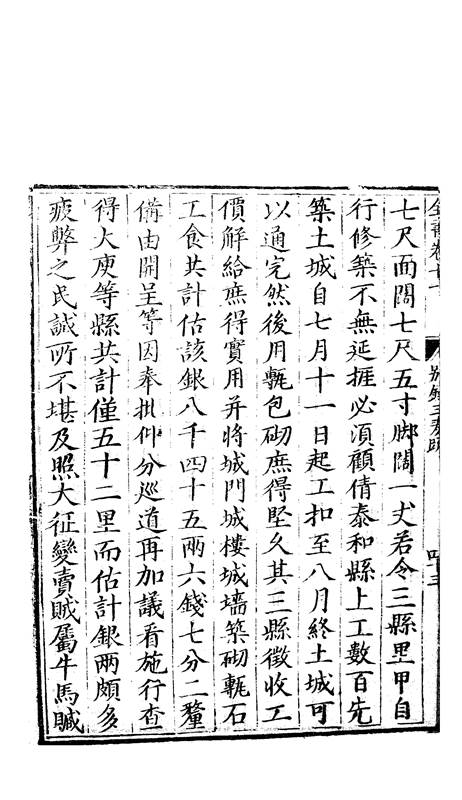 全書卷十一 別錄三奏疏 四十三
七尺面闊七尺五寸脚闊一丈若令三縣里甲自
行修築不無延捱必湏顧倩泰和縣上工數百先
築土城自七月十一日起工扣至八月終土城可
以通完然後用甎包砌庶得堅久其三縣徵收工
價解給庶得實用并將城門城樓城墻築砌甎石
工食共計估該銀八千四十五兩六錢七分二釐
備由開呈等因奉批仰分巡道再加議看施行查
得大庾等縣共計僅五十二里而估計銀兩頗多
疲弊之民誠所不堪及照大征變賣賊屬牛馬贓